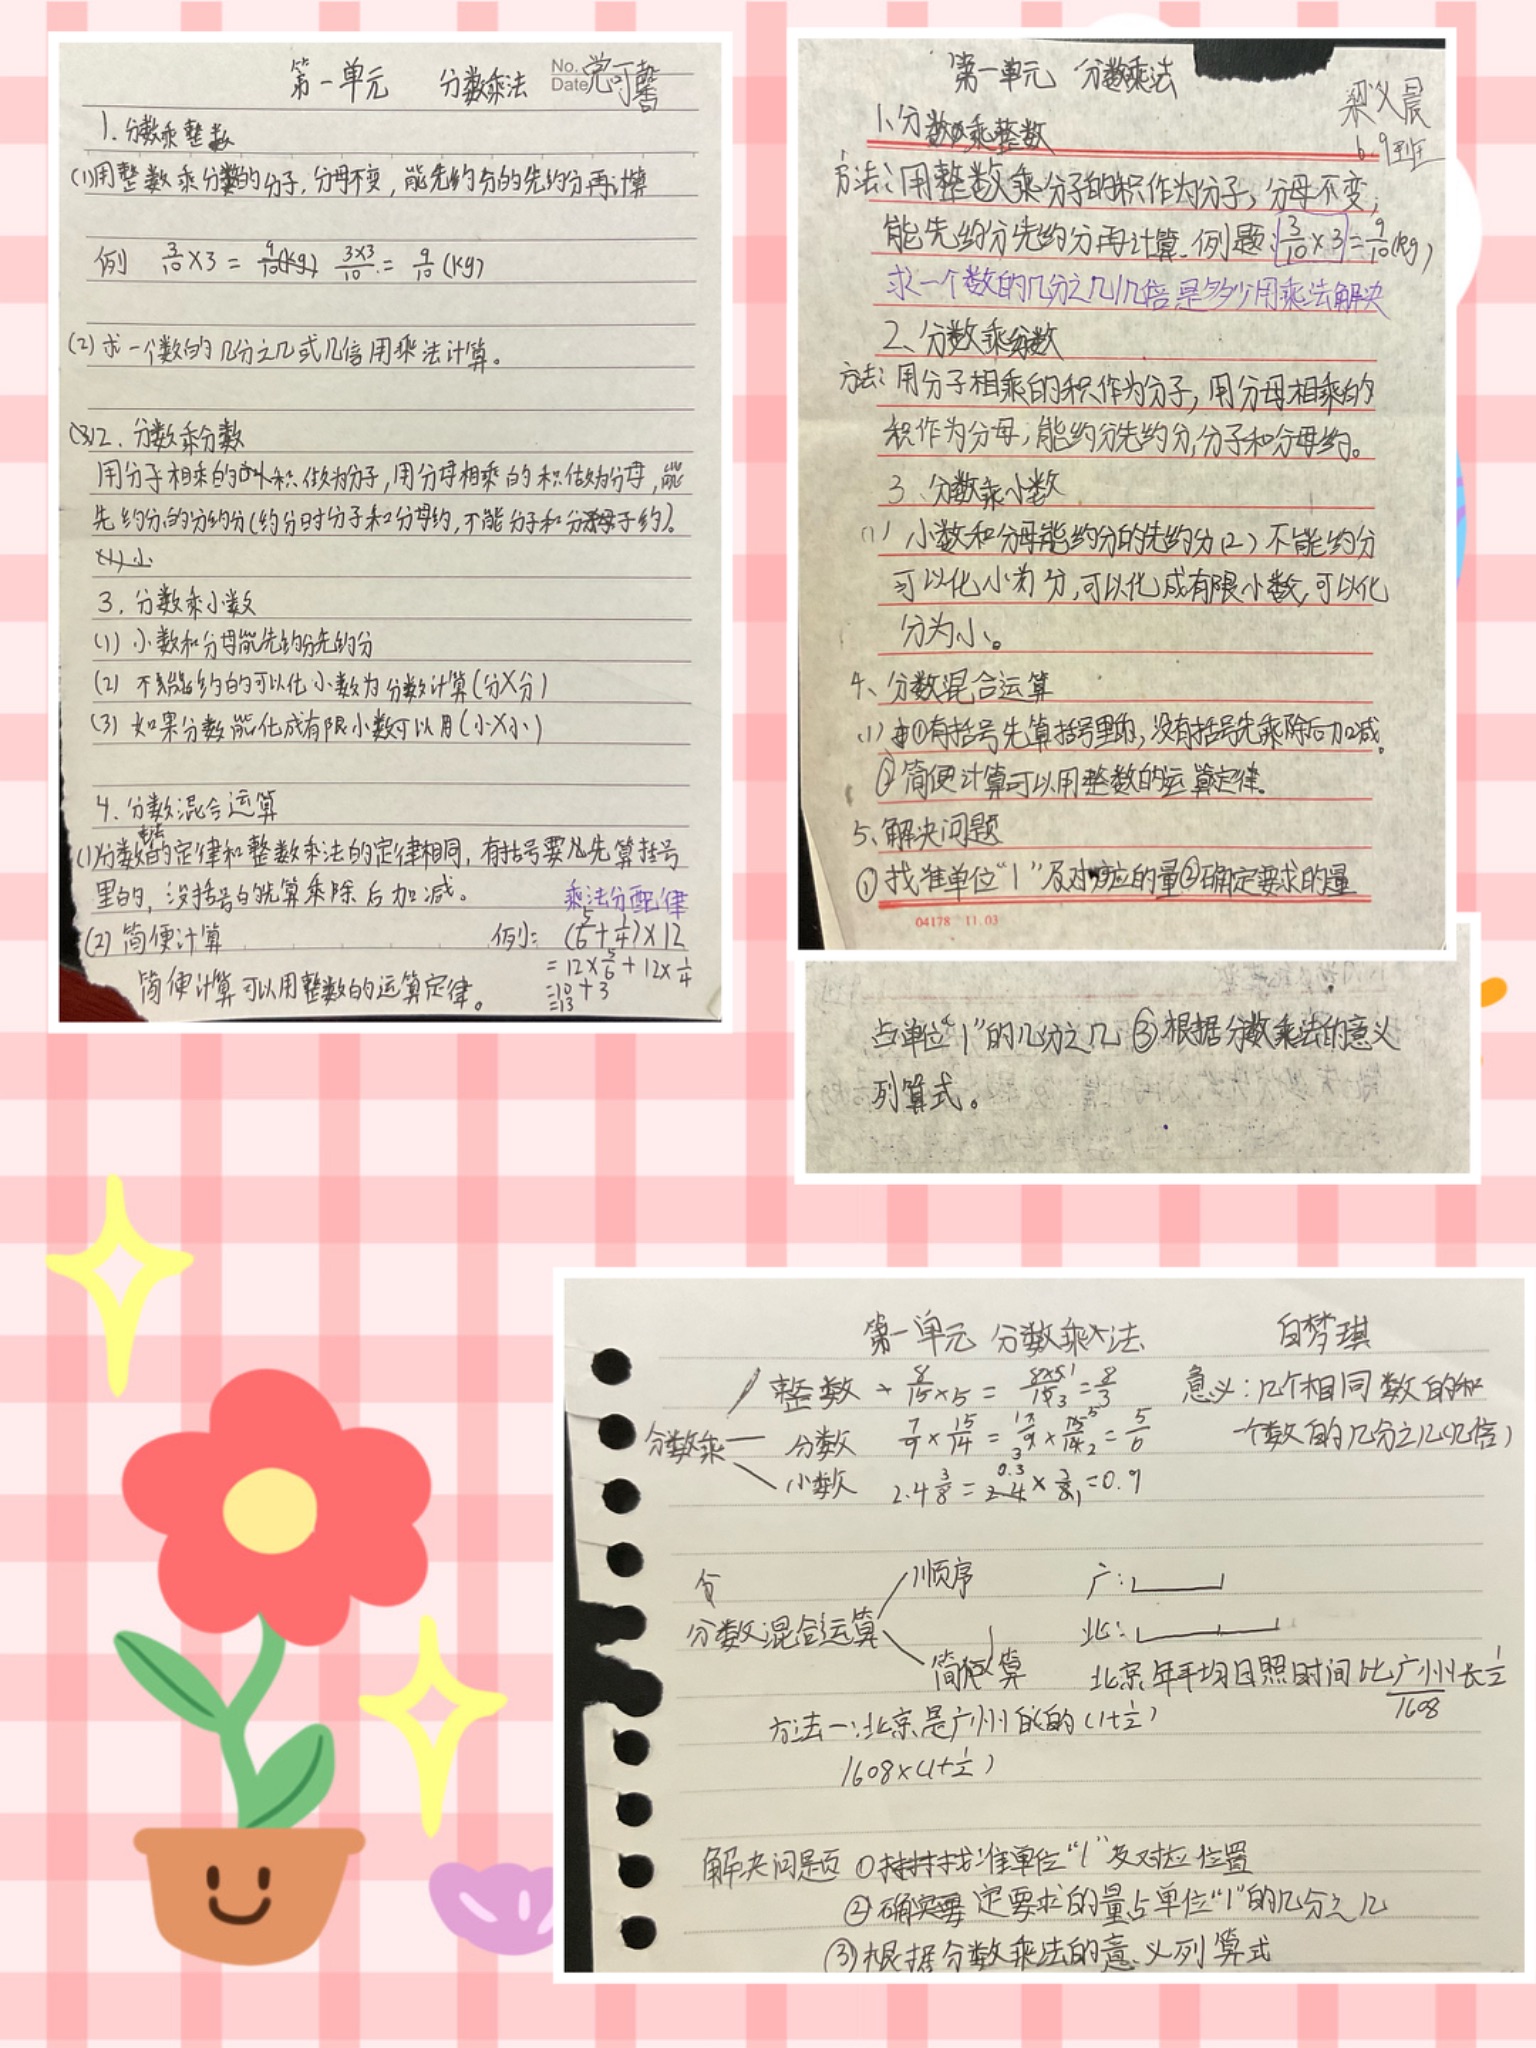 第一单元 分数乘法
No.
Date
党可馨
1. 分数乘整数
(1)用整数乘分数的分子，分母不变，能先约分的先约分再计算
例 3/10×3 = 9/10(kg) 3×3/10 = 9/10 (kg)
(2) 求一个数的几分之几或几倍用乘法计算。
2. 分数乘分数
用分子相乘的积做为分子，用分母相乘的积做为分母，能
先约分的分约分(约分时分子和分母约，不能分子和分子约)。
3. 分数乘小数
(1) 小数和分母能先约分先约分
(2) 不能约的可以化小数为分数计算(分×分)
(3) 如果分数能化成有限小数可以用(小×小)
4. 分数混合运算
(1)分数乘法的定律和整数乘法的定律相同，有括号要先算括号
里的，没括号的先算乘除后加减。
乘法分配律
(2) 简便计算 例: (5/6+1/4)×12
=12×5/6+12×1/4
简便计算可以用整数的运算定律。 =10+3
=13
第一单元 分数乘法
梁义晨
6.9班
1、分数乘整数
方法：用整数乘分子的积作为分子，分母不变，
能先约分先约分再计算. 例题：3/10×3=9/10(kg)
求一个数的几分之几/几倍是多少用乘法解决
2、分数乘分数
方法：用分子相乘的积作为分子，用分母相乘的
积作为分母，能约分先约分，分子和分母约。
3、分数乘小数
(1) 小数和分母能约分的先约分(2) 不能约分
可以化小为分，可以化成有限小数，可以化
分为小。
4、分数混合运算
(1) ①有括号先算括号里的，没有括号先乘除后加减。
②简便计算可以用整数的运算定律。
5、解决问题
①找准单位“1”及对应的量②确定要求的量
04178 11.03
占单位“1”的几分之几 ③根据分数乘法的意义
列算式。
第一单元 分数乘法 白梦琪
整数 8/15×5 = 8×5/15 = 8/3 意义：几个相同数的和
分数乘 分数 7/9×15/14 = 7/9×15/14 = 5/6 一个数的几分之几(几倍)
小数 2.4 3/8 = 2.4×3/8 = 0.9
分
顺序 广：
分数混合运算 北：
简便算 北京年平均日照时间比广州长1/2
1608
方法一：北京是广州的(1+1/2)
1608×(1+1/2)
解决问题 ①找准单位“1”及对应位置
②确定要求的量占单位“1”的几分之几
③根据分数乘法的意义列算式